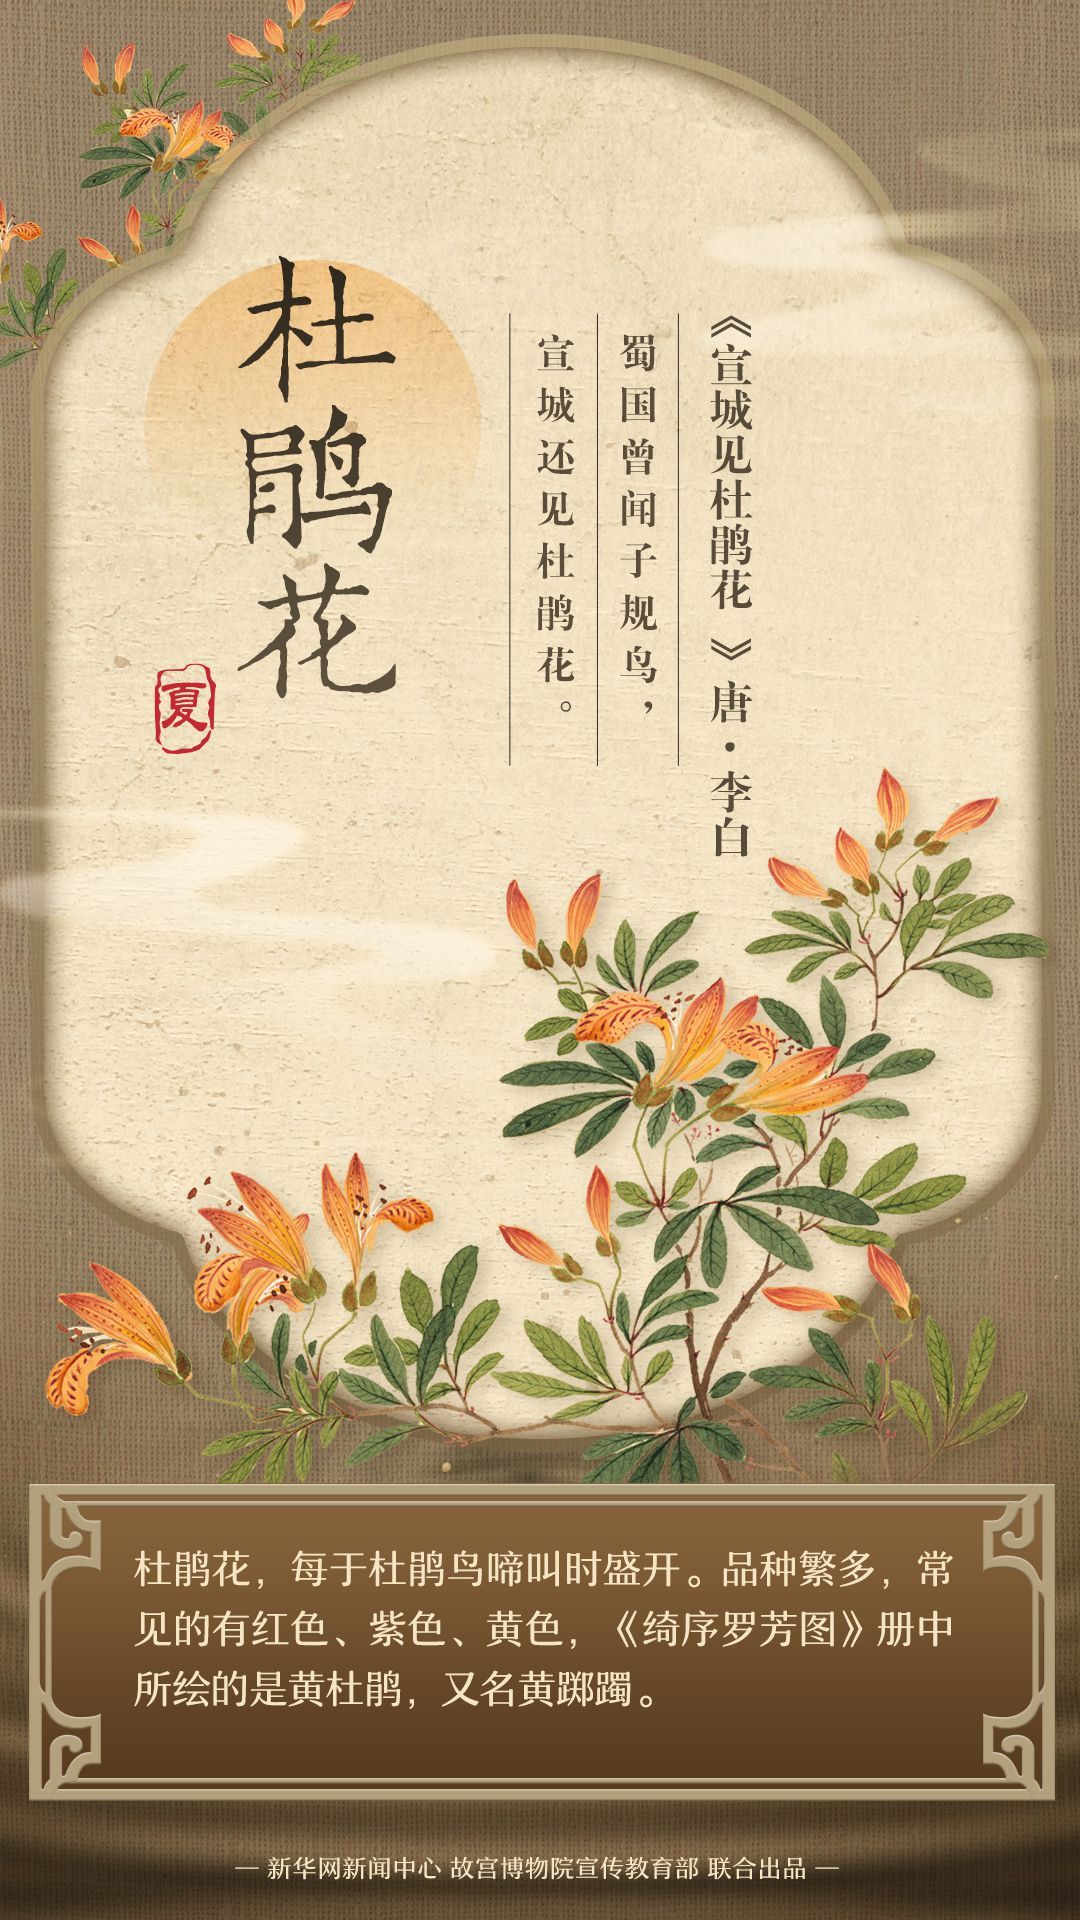 杜鹃花
夏
《宣城见杜鹃花 》唐·李白
蜀国曾闻子规鸟，
宣城还见杜鹃花。
杜鹃花，每于杜鹃鸟啼叫时盛开。品种繁多，常
见的有红色、紫色、黄色，《绮序罗芳图》册中
所绘的是黄杜鹃，又名黄踯躅。
— 新华网新闻中心 故宫博物院宣传教育部 联合出品 —